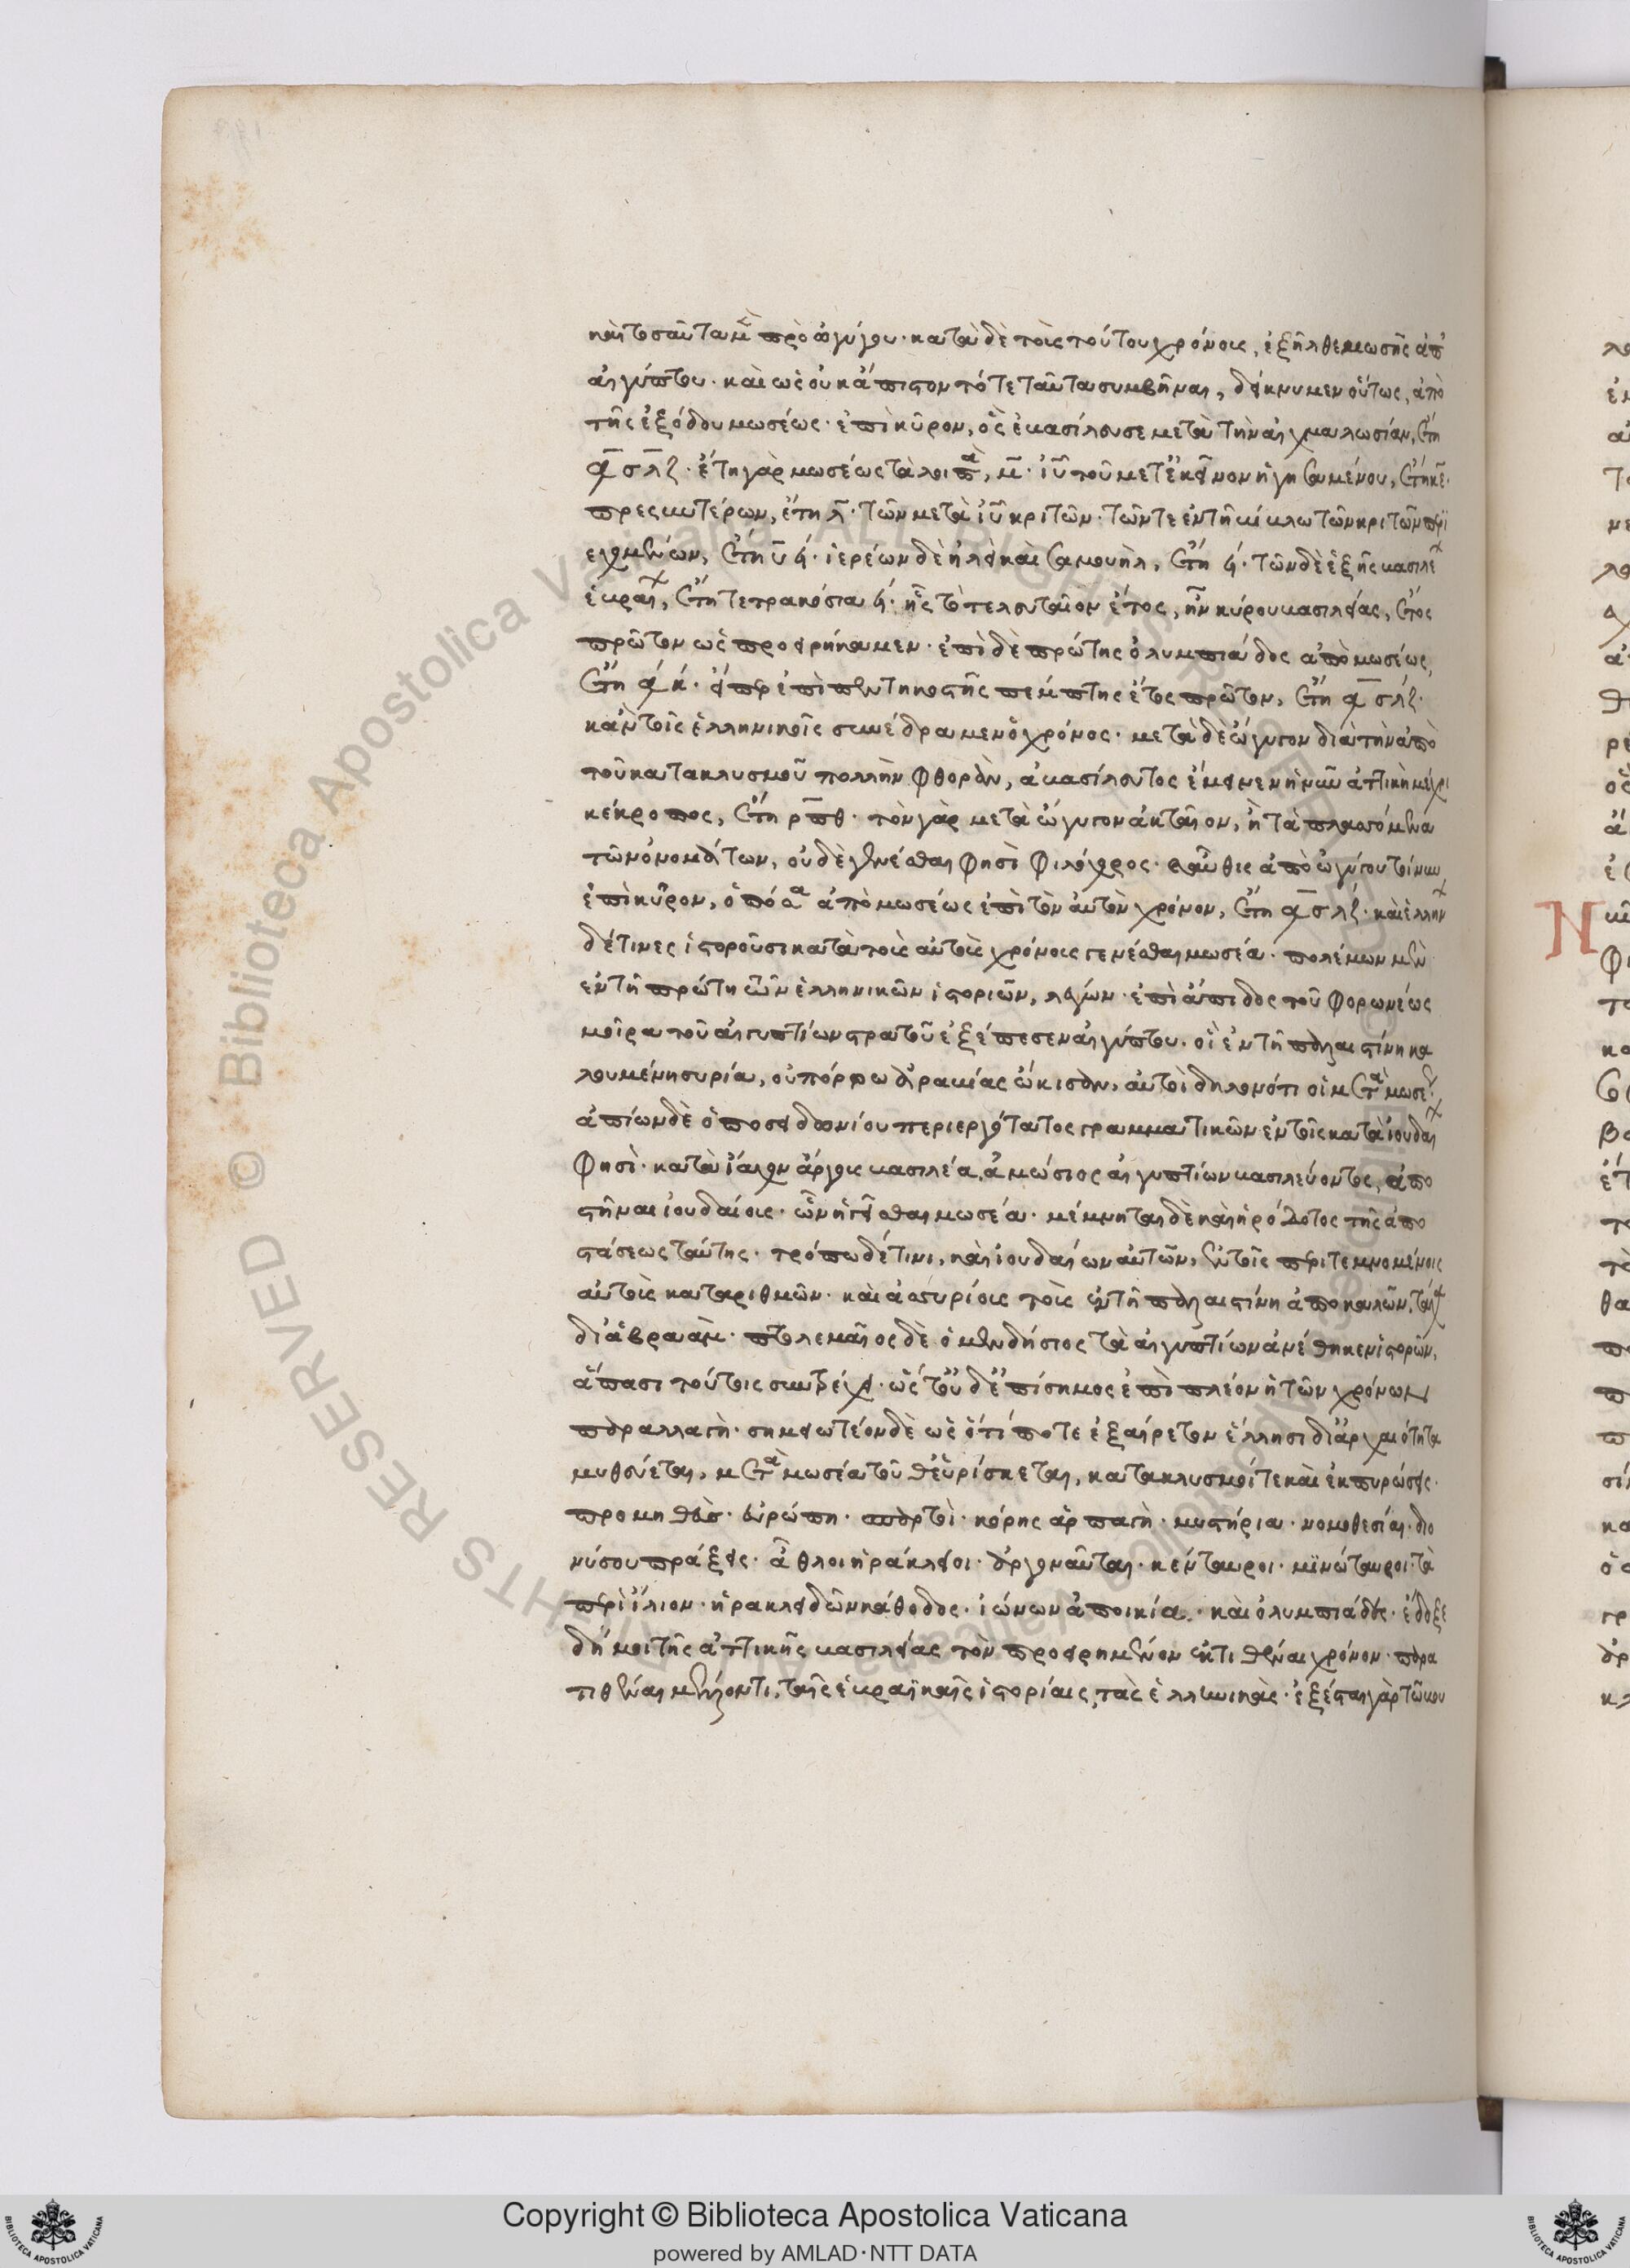 καὶ τοσαῦτα μ(ὲν) πρὸ ὠγύγου· κατὰ δὲ τοὺς τούτου χρόνους, ἐξῆλθε μωσῆς ἀπ
αἰγύπτου· καὶ ὡς οὐκ ἄπιστον τότε ταῦτα συμβῆναι, δείκνυμεν οὕτως, ἀπὸ
τῆς ἐξόδου μωσέως· ἐπὶ κῦρον, ὃς ἐβασίλευσε μετὰ τὴν αἰχμαλωσίαν, ἔτη
͵ασλζ· ἔτη γὰρ μωσέως τὰ λοιπὰ, μ· ἰῦ τοῦ μετ ἐκεῖνον ἡγησαμένου, ἔτη κε·
πρεσβυτέρων, ἔτη λ· τῶν μετὰ ἰῦ κριτῶν· τῶν τε ἐν τῆ βίβλω τῶν κριτῶν περι
εχομένων, ἔτη υϟ· ἱερέων δὲ ἠλεὶ καὶ σαμουὴλ, ἔτη ϟ· τῶν δὲ ἑξῆς βασιλέ
ἑβραί, ἔτη τετρακόσια ϟ· ἧς τὸ τελευταῖον ἔτος, ἦν κύρου βασιλείας, ἔτος
πρῶτον ὡς προειρήκαμεν· ἐπὶ δὲ πρώτης ὀλυμπιάδος ἀπὸ μωσέως,
ἔτη ͵ακ· εἴπερ ἐπὶ πεντηκοστῆς πέμπτης ἔτος πρῶτον, ἔτη ͵ασλζ·
κἀν τοῖς ἑλληνικοῖς συνέδραμεν ὁ χρόνος· μετὰ δὲ ὤγυγον διὰ τὴν ἀπὸ
τοῦ κατακλυσμοῦ πολλὴν φθορὰν, ἀβασίλευτος ἔμεινεν ἡ νῦν ἀττικὴ μέχρι
κέκροπος, ἔτη ρπθ· τὸν γὰρ μετὰ ὤγυγον ἀκταῖον, ἢ τὰ πλασσόμενα
τῶν ὀνομάτων, οὐδὲ γενέσθαι φησὶ φιλόχορος· αὖθις ἀπὸ ὠγύγου τοίνυν,
ἐπὶ κῦρον, ὁπόσα ἀπὸ μωσέως ἐπὶ τὸν αὐτὸν χρόνον, ἔτη ͵ασλζ· καὶ ἑλλήν
δέ τινες ἱστοροῦσι κατὰ τοὺς αὐτοὺς χρόνους γενέσθαι μωσέα· πολέμων μὲν
ἐν τῆ πρώτη τῶν ἑλληνικῶν ἱστοριῶν, λέγων· ἐπὶ ἄπιδος τοῦ φορωνέως
μοῖρα τοῦ αἰγυπτίων στρατοῦ ἐξέπεσεν αἰγύπτου· οἳ ἐν τῆ παλαιστίνη κα
λουμένη συρία, οὐ πόρρω ἀραβίας ὤκισαν, αὐτοὶ δηλονότι οἱ μετὰ μωσέ
ἀπίων δὲ ὁ ποσειδωνίου περιεργότατος γραμματικῶν ἐν τοῖς κατὰ ἰουδαί
φησὶ· κατὰ ἴναχον ἄργους βασιλέα, ἀμώσιος αἰγυπτίων βασιλεύοντος, ἀπο
στῆναι ἰουδαίους· ὧν ἡγεῖσθαι μωσέα· μέμνηται δὲ καὶ ἡρόδοτος τῆς ἀπο
στάσεως ταύτης· τρόπω δέ τινι, καὶ ἰουδαίων αὐτῶν, ἐν τοῖς περιτεμνομένοις
αὐτοὺς καταριθμῶν· καὶ ἀσσυρίους τοὺς ἐν τῆ παλαιστίνη ἀποκαλῶν, τάχ
δι ἀβραάμ· πτολεμαῖος δὲ ὁ μενδήσιος τὰ αἰγυπτίων ἀνέθηκεν ἱστορῶν,
ἅπασι τούτοις συντρέχει· ὥστ οὐδ ἐπίσημος ἐπὶ πλέον ἡ τῶν χρόνων
παραλλαγή· σημειωτέον δὲ ὡς ὅτί ποτε ἐξαίρετον ἕλλησι δι ἀρχαιότητα
μυθεύεται, μετὰ μωσέα τοῦθ εὑρίσκεται, κατακλυσμοί τε καὶ ἐκπυρώσεις·
προμηθεὺς· εὐρώπη· σπαρτοὶ· κόρης ἁρπαγὴ· μυστήρια· νομοθεσίαι· διο
νύσου πράξεις· ἆθλοι ἡράκλειοι· ἀργοναῦται· κένταυροι· μινώταυροι· τὰ
περὶ ἴλιον· ἡρακλειδῶν κάθοδος· ἰώνων ἀποικία· καὶ ὀλυμπιάδες· ἔδοξε
δή μοι τῆς ἀττικῆς βασιλείας τὸν προειρημένον ἐκτιθέναι χρόνον· παρα
τιθέναι μέλλοντι, ταῖς ἑβραϊκαῖς ἱστορίαις, τὰς ἑλληνικὰς· ἐξέσται γὰρ τῶ βου
Copyright © Biblioteca Apostolica Vaticana
powered by AMLAD·NTT DATA